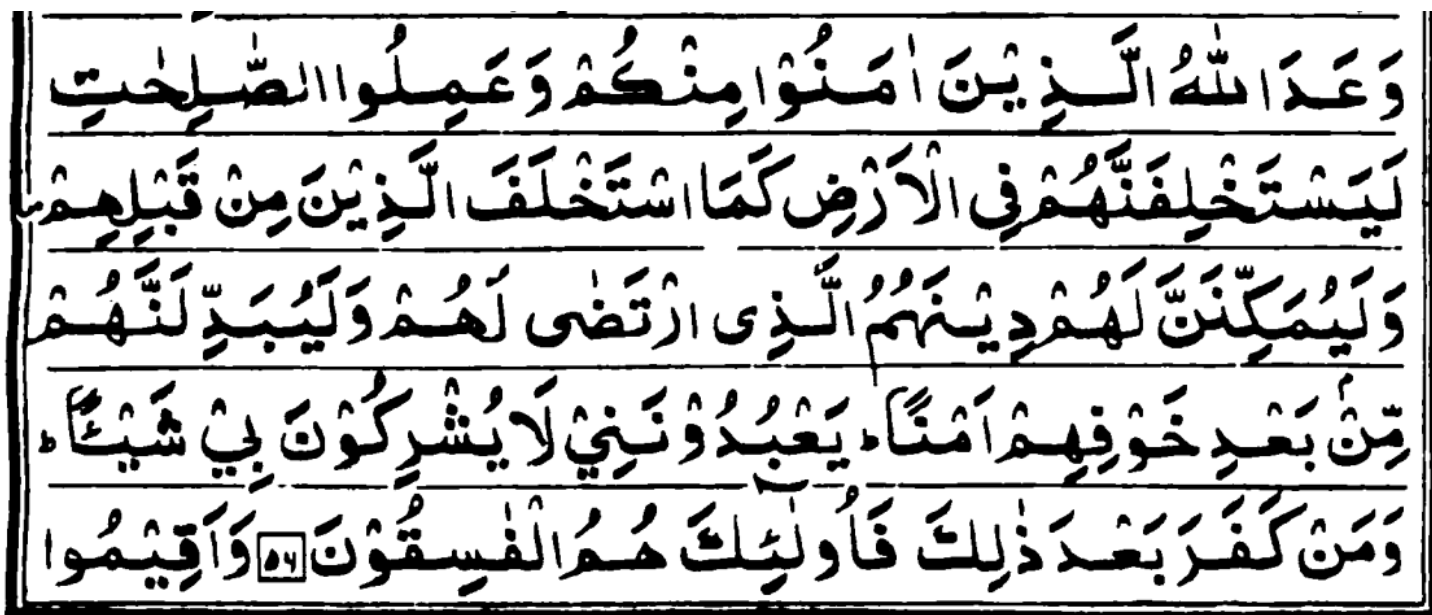 وَعَدَ اللّٰهُ الَّذِيْنَ اٰمَنُوْا مِنْكُمْ وَعَمِلُوا الصّٰلِحٰتِ
لَيَسْتَخْلِفَنَّهُمْ فِى الْاَرْضِ كَمَا اسْتَخْلَفَ الَّذِيْنَ مِنْ قَبْلِهِمْ
وَلَيُمَكِّنَنَّ لَهُمْ دِيْنَهُمُ الَّذِى ارْتَضٰى لَهُمْ وَلَيُبَدِّلَنَّهُمْ
مِّنْۢ بَعْدِ خَوْفِهِمْ اَمْنًا ؕ يَعْبُدُوْنَنِيْ لَا يُشْرِكُوْنَ بِيْ شَيْـًٔا ؕ
وَمَنْ كَفَرَ بَعْدَ ذٰلِكَ فَاُولٰٓئِكَ هُمُ الْفٰسِقُوْنَ ۵۶ وَاَقِيْمُوا